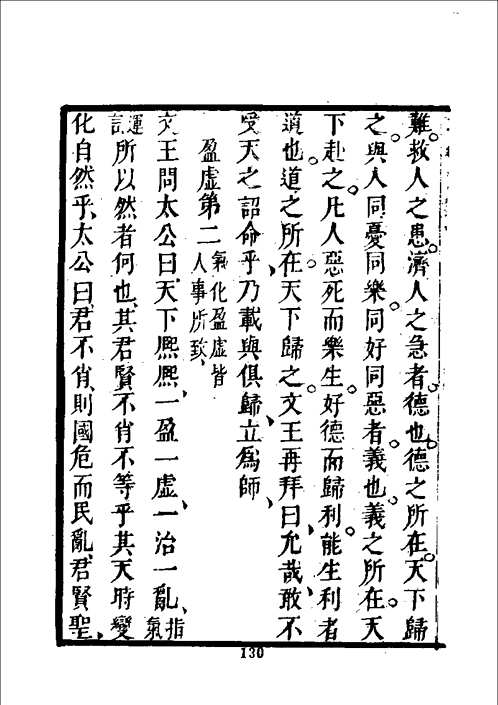 難救人之患濟人之急者德也德之所在天下歸
之與人同憂同樂同好同惡者義也義之所在天
下赴之凡人惡死而樂生好德而歸利能生利者
道也道之所在天下歸之文王再拜曰允哉敢不
受天之詔命乎乃載與俱歸立爲師
盈虛第二氣化盈虛皆人事所致
文王問太公曰天下熈熈一盈一虛一治一亂指氣
運言所以然者何也其君賢不肖不等乎其天時變
化自然乎太公曰君不肖則國危而民亂君賢聖
130